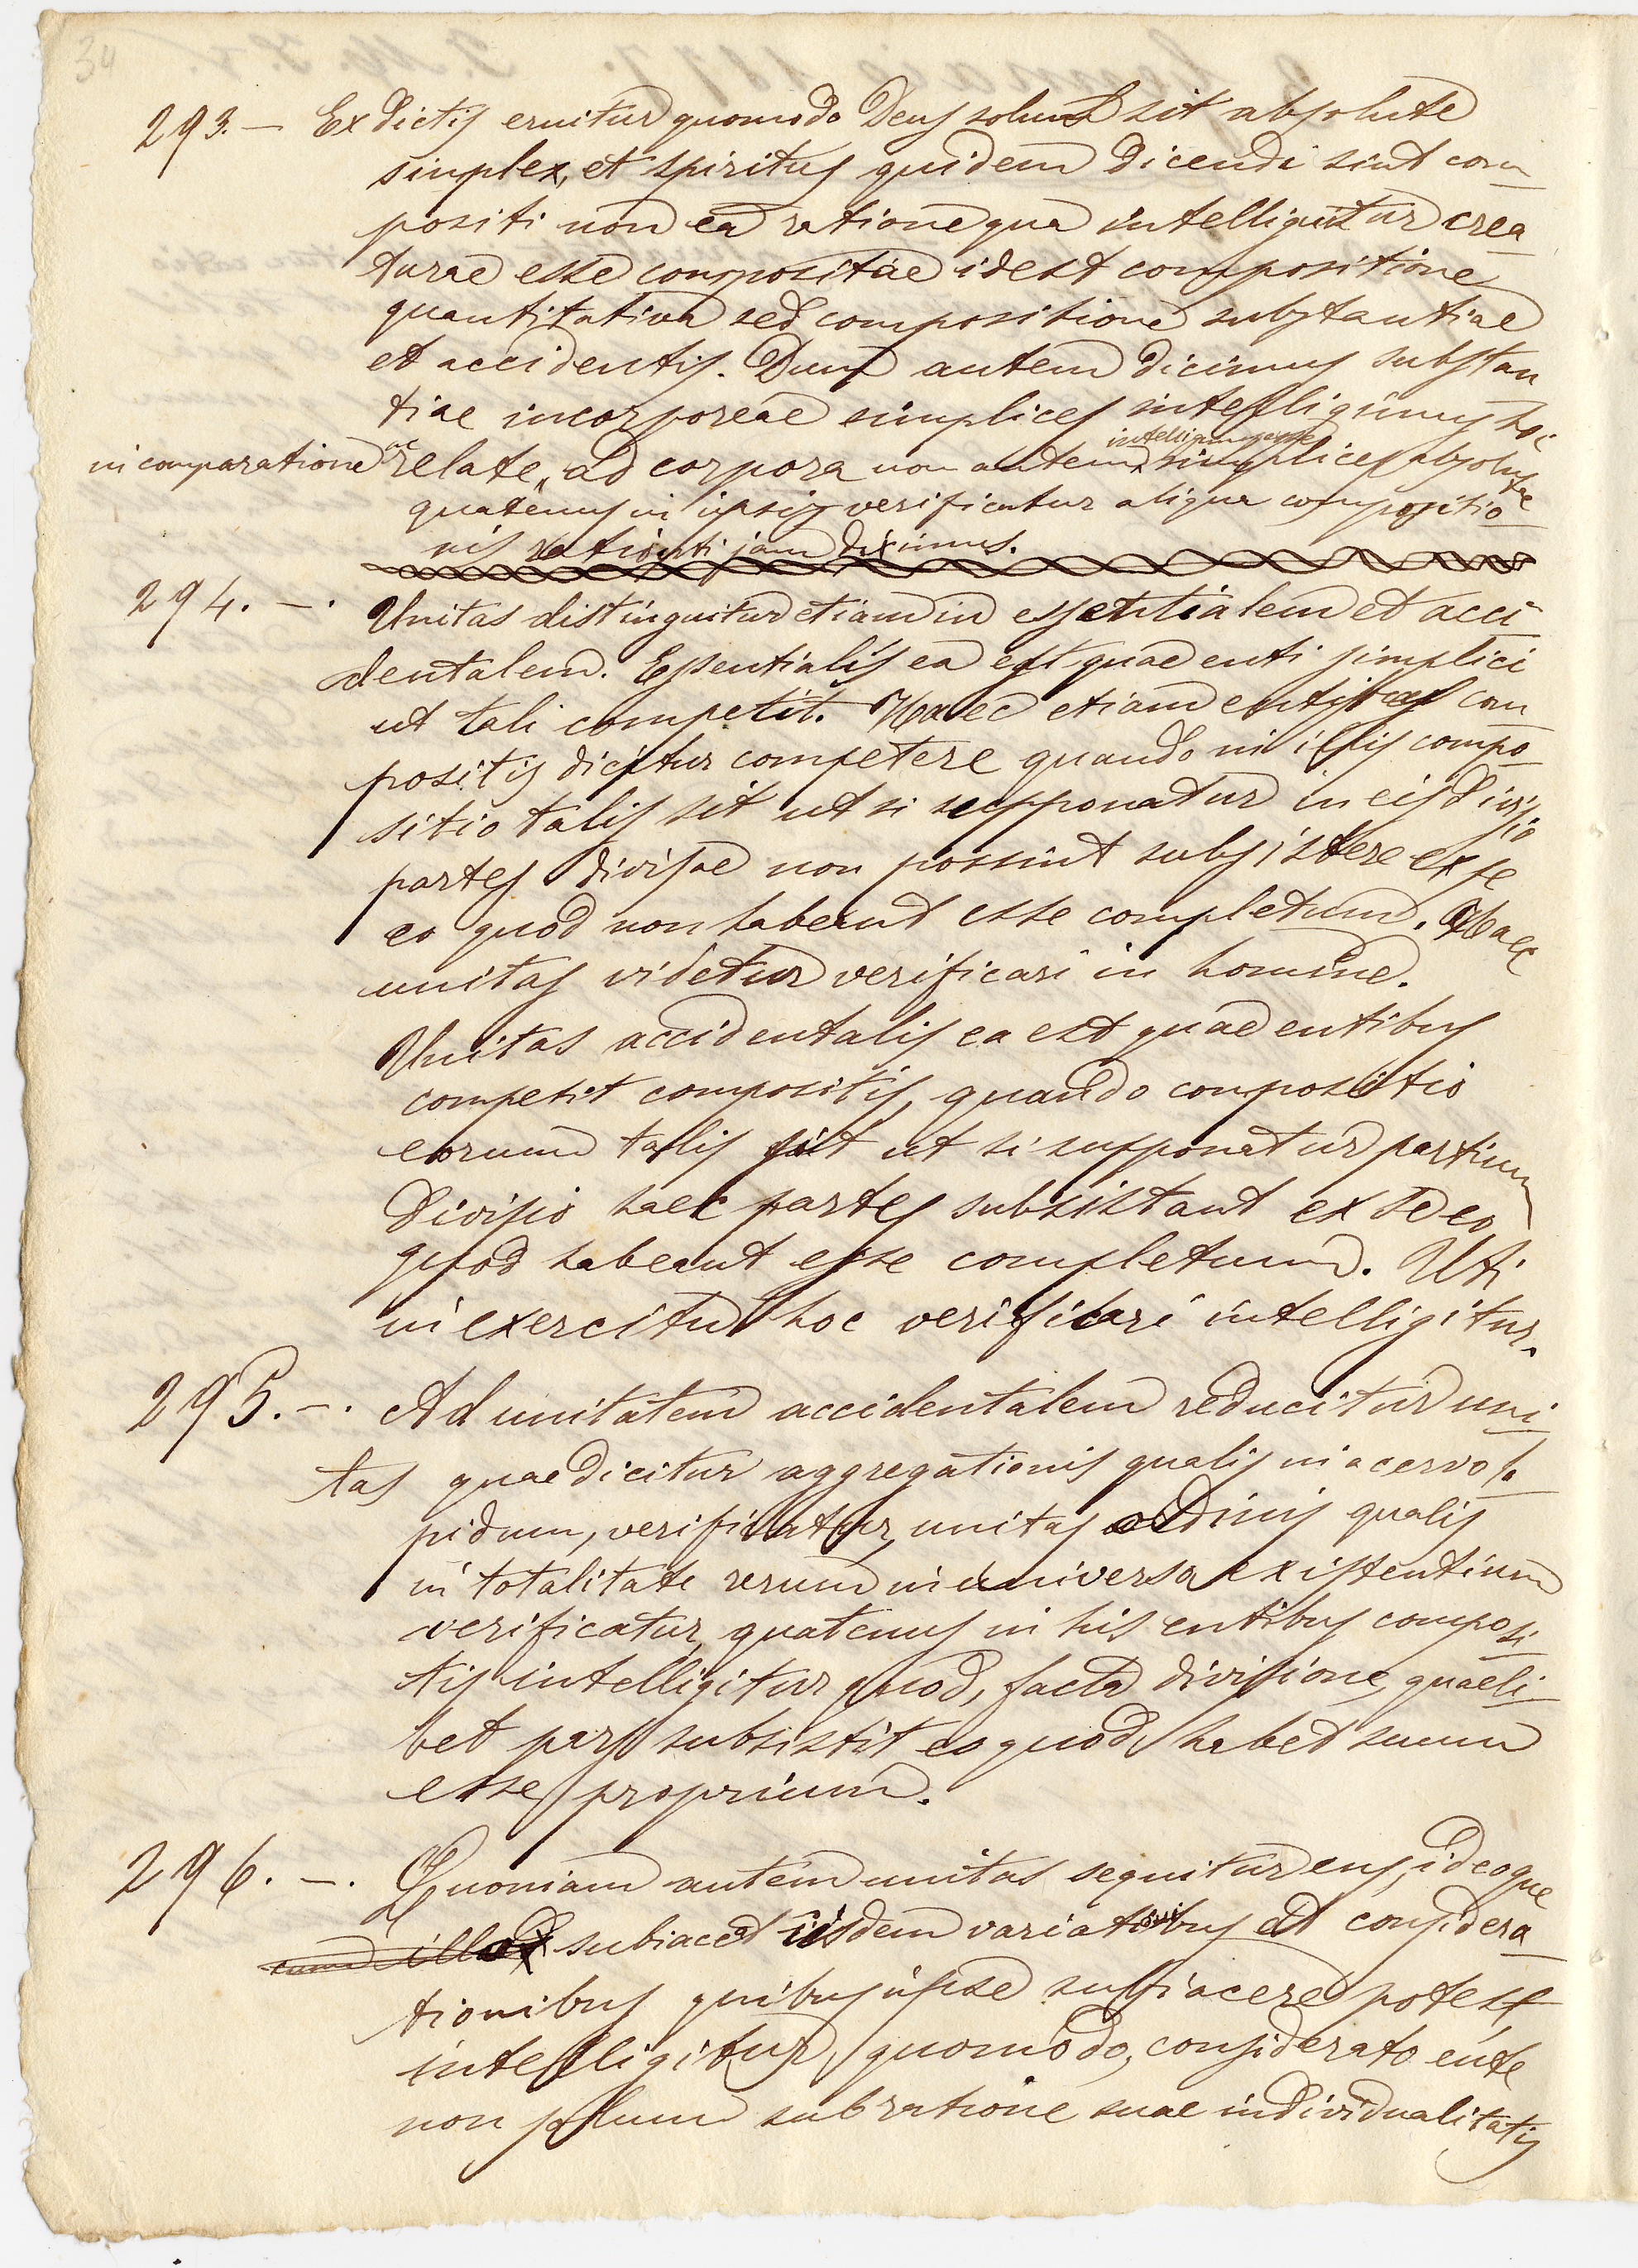 34
293. — Ex dictis eruitur quomodo Deus solum sit absolute
simplex, et spiritus quidem dicendi sint com
positi non ea ratione qua intelliguntur crea
turae esse compositae idest compositione
quantitativa sed compositione substantiae
et accidentis. Dum autem dicimus substan
tiae incorporeae simplices intelligimus hoc
intelligimus esse
in comparatione ac relate ad corpora non autem simplices absolutae
quatenus in ipsis verificatur aliqua compositio
nis ratio uti jam diximus.
294. —. Unitas distinguitur etiam in essentialem et acci
dentalem. Essentialis ea est quae enti simplici
ut tali competit. Haec etiam entibus com
positis dicitur competere quando in illis compo
sitio talis sit ut si supponatur in eis divisio
partes divisae non possint subsistere ex se
eo quod non habeant esse completum. Haec
unitas videtur verificari in homine.
Unitas accidentalis ea est quae entibus
competit compositis, quando compositio
eorum talis sit ut si supponatur partium
divisio haec partes subsistant ex se eo
quod habeant esse completum. Uti
in exercitu hoc verificari intelligitur.
295. —. Ad unitatem accidentalem reducitur uni
tas quae dicitur aggregationis qualis in acervo la
pidum, verificatur, unitas ordinis qualis
in totalitate rerum in universo existentium
verificatur, quatenus in his entibus composi
tis intelligitur quod, facta divisione, quaeli
bet pars subsistit eo quod habet suum
esse proprium.
296. —. Quoniam autem unitas sequitur ens, ideoque
subiacet iisdem variationibus et considera
tionibus quibus ipse subjacere potest,
intelligitur, quomodo, considerato ente
non solum sub ratione suae individualitatis